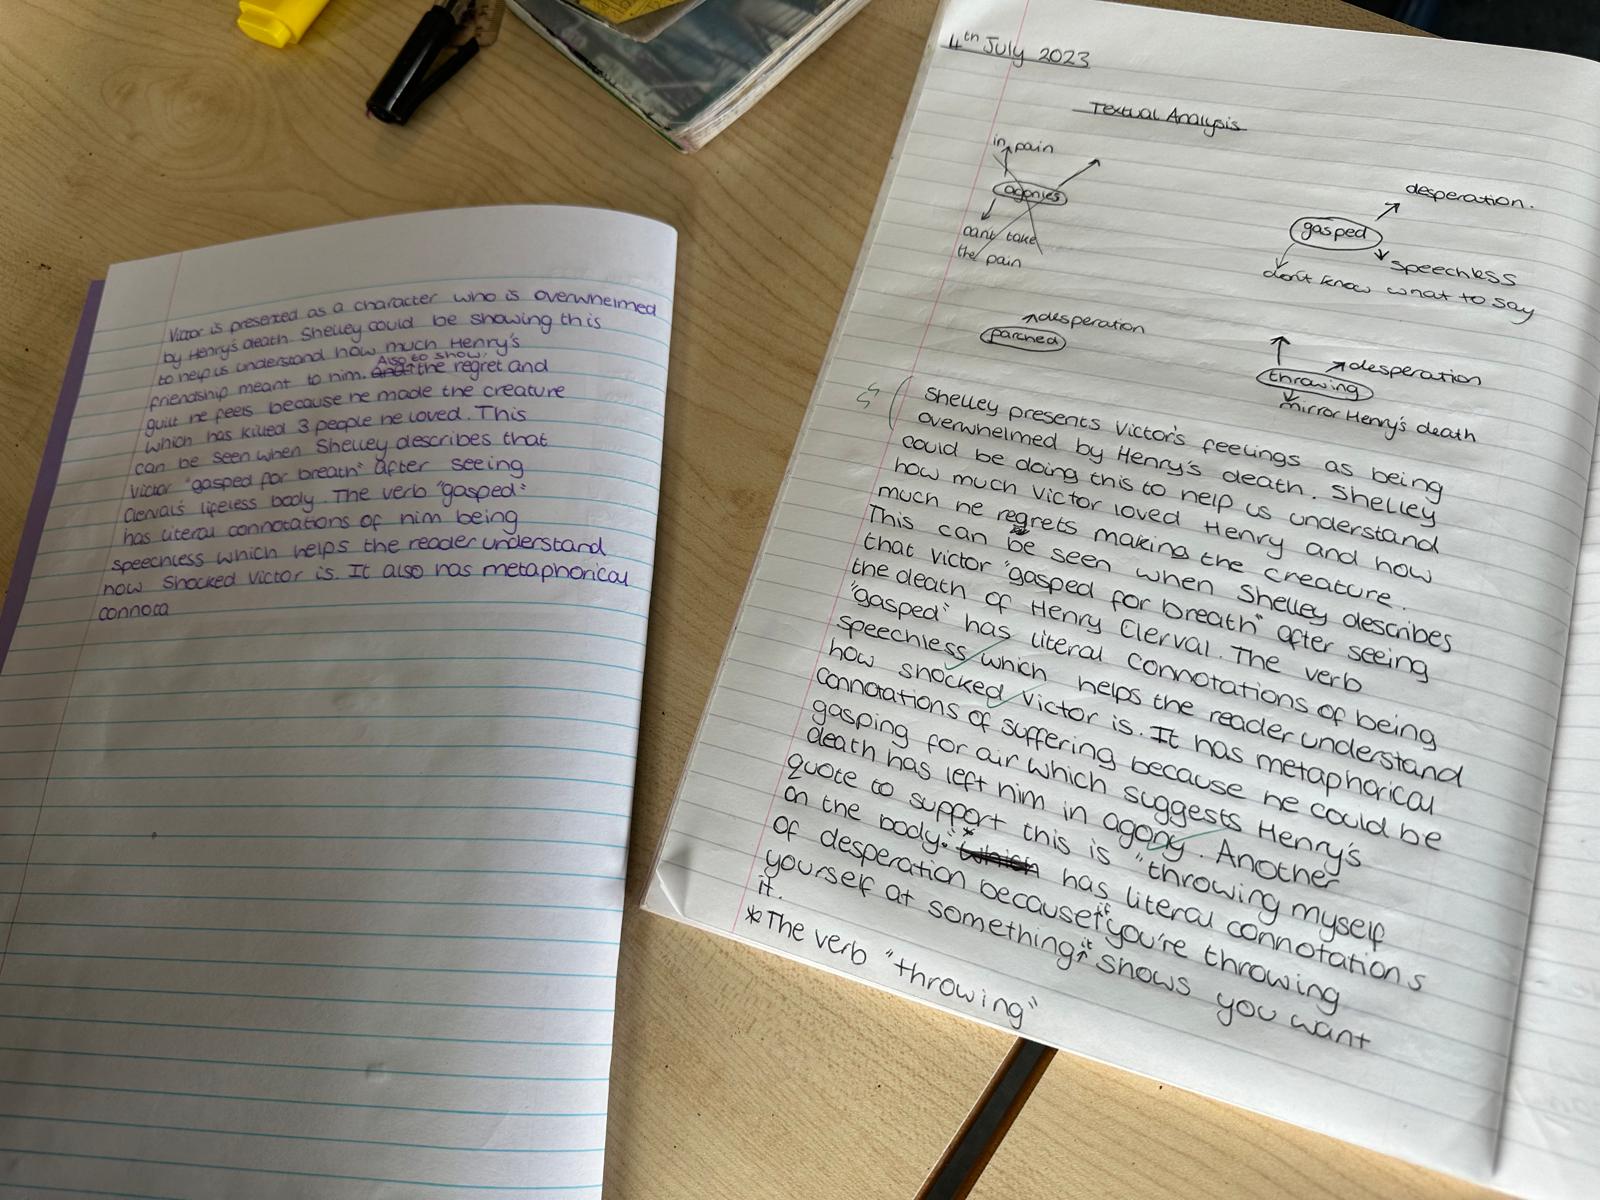 Victor is presented as a character who is overwhelmed
by Henry's death. Shelley could be showing this
to help us understand how much Henry's
friendship meant to him. Also to show, the regret and
guilt he feels because he made the creature
which has killed 3 people he loved. This
can be seen when Shelley describes that
Victor "gasped for breath" after seeing
Clervals lifeless body. The verb "gasped"
has literal connotations of him being
speechless which helps the reader understand
how shocked Victor is. It also has metaphorical
connota
4th July 2023
Textual Analysis
in pain
agonies
cant take
the pain
desperation.
gasped
speechless
don't know what to say
desperation
parched
desperation
throwing
mirror Henry's death
Shelley presents Victor's feelings as being
overwhelmed by Henry's death. Shelley
could be doing this to help us understand
how much Victor loved Henry and how
much he regrets making the creature.
This can be seen when Shelley describes
that Victor "gasped for breath" after seeing
the death of Henry Clerval. The verb
"gasped" has literal connotations of being
speechless which helps the reader understand
how shocked Victor is. It has metaphorical
connotations of suffering because he could be
gasping for air which suggests Henry's
death has left him in agony. Another
quote to support this is "throwing myself
on the body". * which has literal connotations
of desperation because if you're throwing
yourself at something it shows you want
it.
*The verb "throwing"